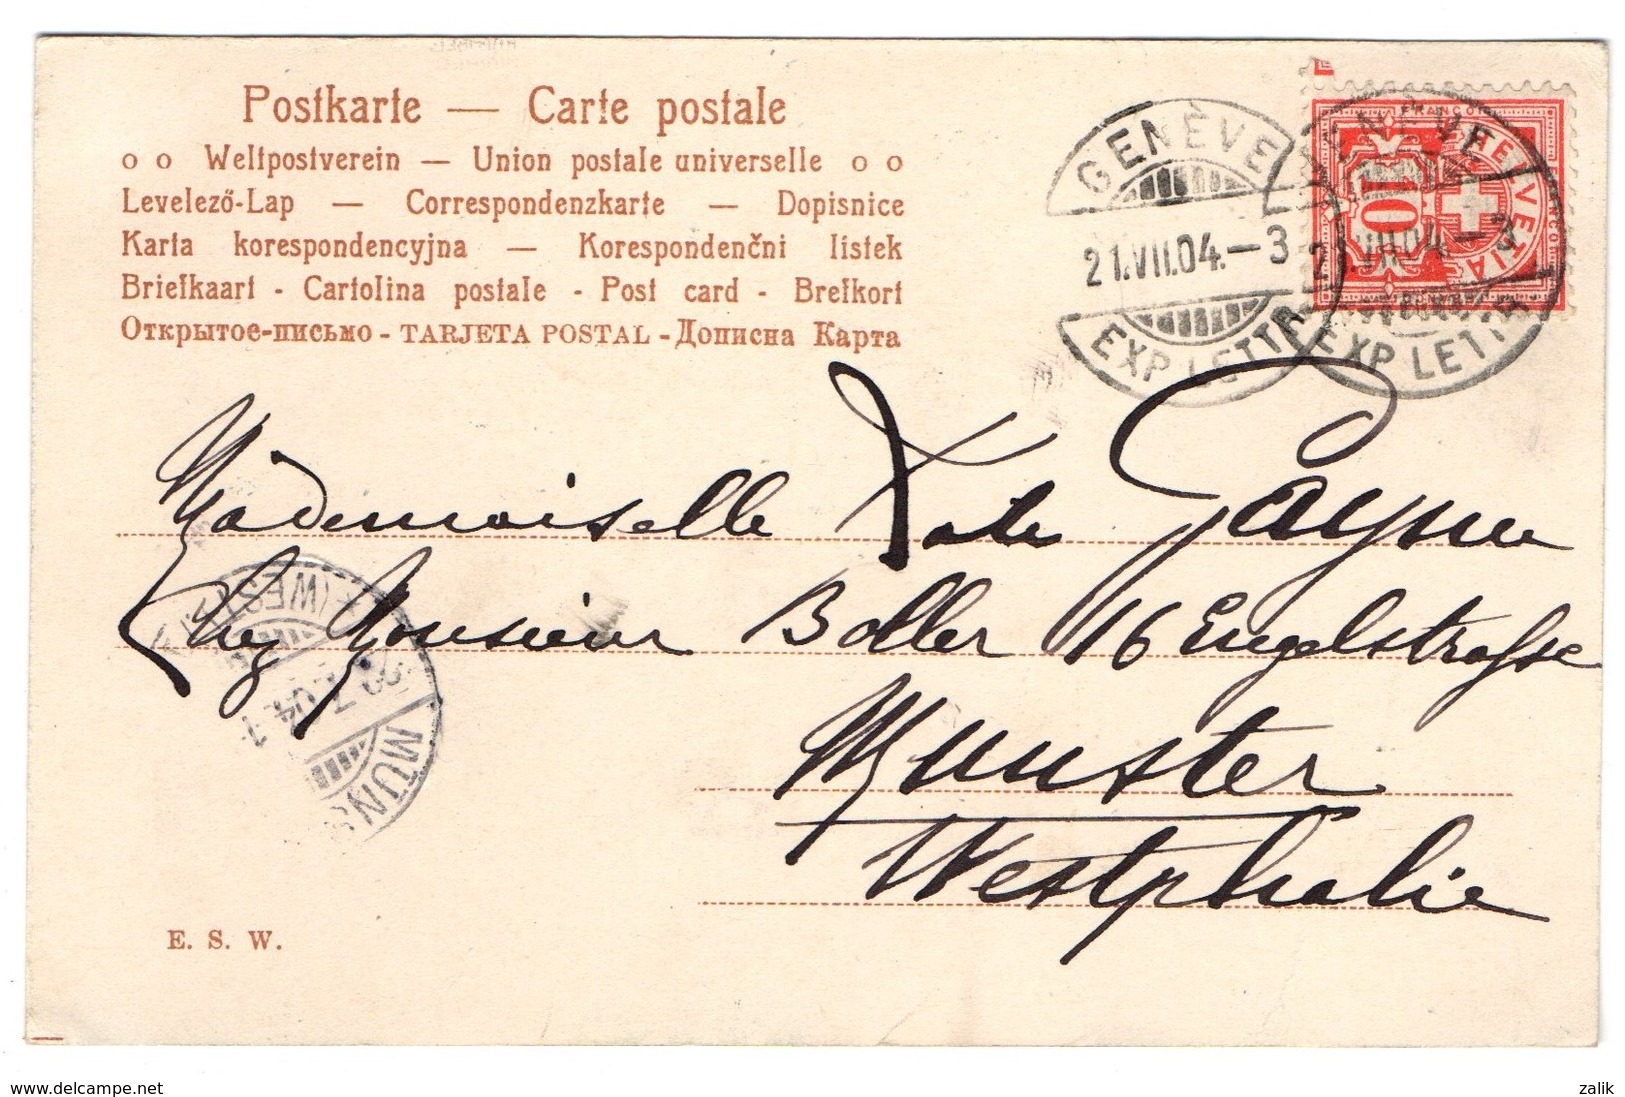 Postkarte — Carte postale
o o Weltpostverein — Union postale universelle o o
Levelező-Lap — Correspondenzkarte — Dopisnice
Karta korespondencyjna — Korespondenčni listek
Briefkaart - Cartolina postale - Post card - Brefkort
Открытое-письмо - TARJETA POSTAL - Дописна Карта
GENÈVE
21.VII.04.-3
EXP. LETTR
GENÈVE
21.VII.04.-3
EXP. LETTR
FRANCO
HELVETIA
10
Mademoiselle Kate Payne
Chez Monsieur Boller 16 Engelstrasse
Munster
Westphalie
MÜNS
(WESTF
7.04.
E. S. W.
www.delcampe.net
zalik